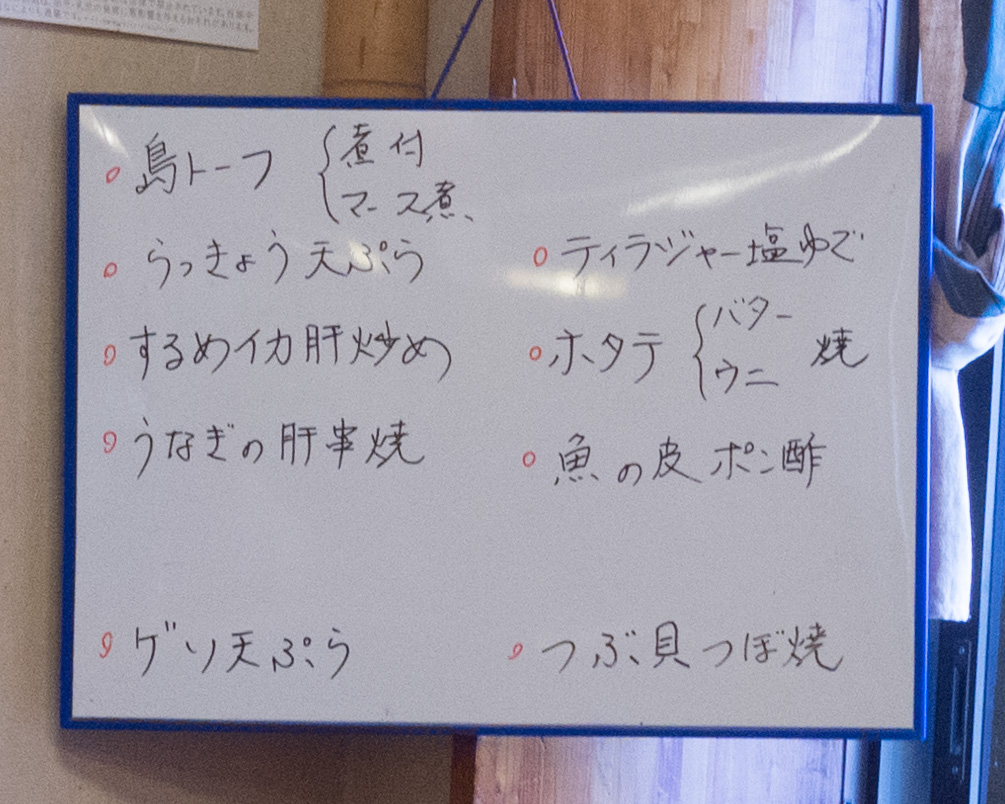 島トーフ { 煮付
マース煮
らっきょう天ぷら
するめイカ肝炒め
うなぎの肝串焼
ゲソ天ぷら
ティラジャー塩ゆで
ホタテ { バター 焼
ウニ
魚の皮ポン酢
つぶ貝つぼ焼